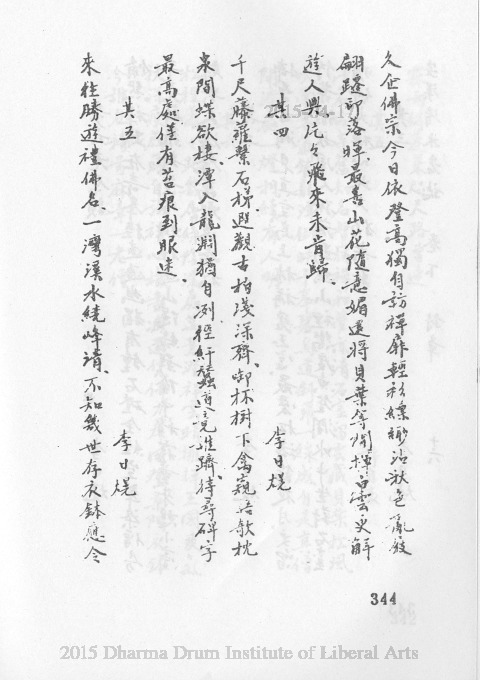 久企佛宗今日依登高獨自訪禪扉輕衫縹緲沾秋色亂殷
翩躚印落暉最喜山花隨意媚還將貝葉等閒揮白雲更解
遊人興片々飛來未肯歸
其四 李日焜
千尺藤蘿繫石梯遐觀古柏淺深齊御杯樹下禽窺語欹枕
泉間蝶欲棲潭入龍淵猶自冽徑紆蠶道誰躋待尋碑字
最高處僅有苔痕到眼迷
其五 李日焜
來往勝遊禮佛名一灣溪水繞峰清不知幾世存衣鉢應令
344
2015 Dharma Drum Institute of Liberal Arts